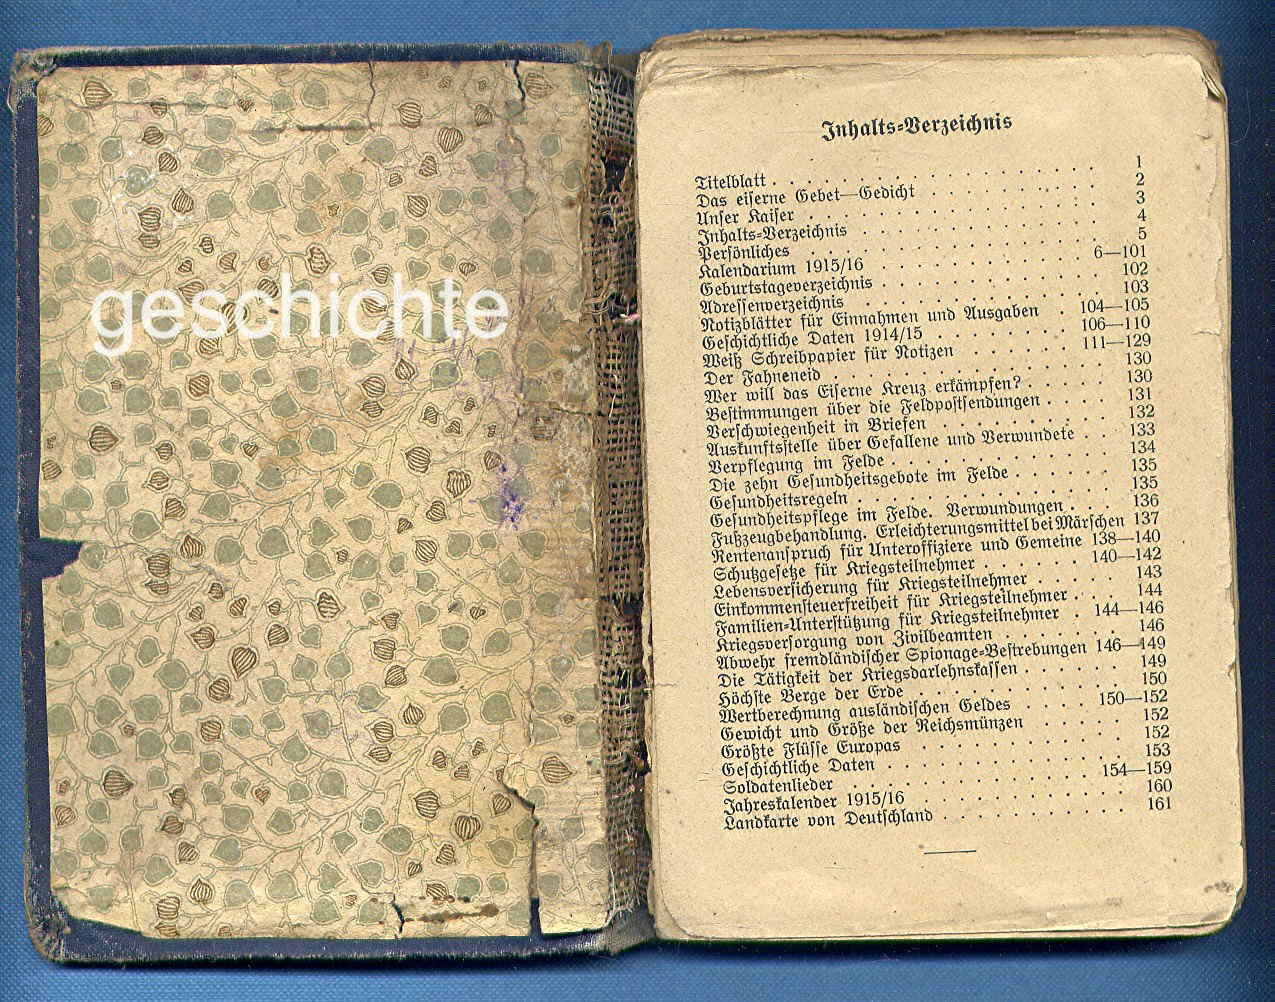 geschichte
Inhalts-Verzeichnis
Titelblatt . . . . . . . . . . 1
Das eiserne Gebet—Gedicht . . . . . . . . . . 2
Unser Kaiser . . . . . . . . . . 3
Inhalts-Verzeichnis . . . . . . . . . . 4
Persönliches . . . . . . . . . . 5
Kalendarium 1915/16 . . . . . . . . . . 6—101
Geburtstageverzeichnis . . . . . . . . . . 102
Adressenverzeichnis . . . . . . . . . . 103
Notizblätter für Einnahmen und Ausgaben . 104—105
Geschichtliche Daten 1914/15 . . . . . . . 106—110
Weiß Schreibpapier für Notizen . . . . . . 111—129
Der Fahneneid . . . . . . . . . . 130
Wer will das Eiserne Kreuz erkämpfen? . . . . . 130
Bestimmungen über die Feldpostsendungen . . . . 131
Verschwiegenheit in Briefen . . . . . . . . . . 132
Auskunftsstelle über Gefallene und Verwundete . . . 133
Verpflegung im Felde . . . . . . . . . . 134
Die zehn Gesundheitsgebote im Felde . . . . . . 135
Gesundheitsregeln . . . . . . . . . . 135
Gesundheitspflege im Felde. Verwundungen . . . . 136
Fußzeugbehandlung. Erleichterungsmittel bei Märschen 137
Rentenanspruch für Unteroffiziere und Gemeine 138—140
Schutzgesetze für Kriegsteilnehmer . . . . . . 140—142
Lebensversicherung für Kriegsteilnehmer . . . . . 143
Einkommensteuerfreiheit für Kriegsteilnehmer . . . . 144
Familien-Unterstützung für Kriegsteilnehmer . 144—146
Kriegsversorgung von Zivilbeamten . . . . . . . 146
Abwehr fremdländischer Spionage-Bestrebungen 146—149
Die Tätigkeit der Kriegsdarlehnskassen . . . . . . 149
Höchste Berge der Erde . . . . . . . . . . 150
Wertberechnung ausländischen Geldes . . . . 150—152
Gewicht und Größe der Reichsmünzen . . . . . 152
Größte Flüsse Europas . . . . . . . . . . 152
Geschichtliche Daten . . . . . . . . . . 153
Soldatenlieder . . . . . . . . . . 154—159
Jahreskalender 1915/16 . . . . . . . . . . 160
Landkarte von Deutschland . . . . . . . . . . 161